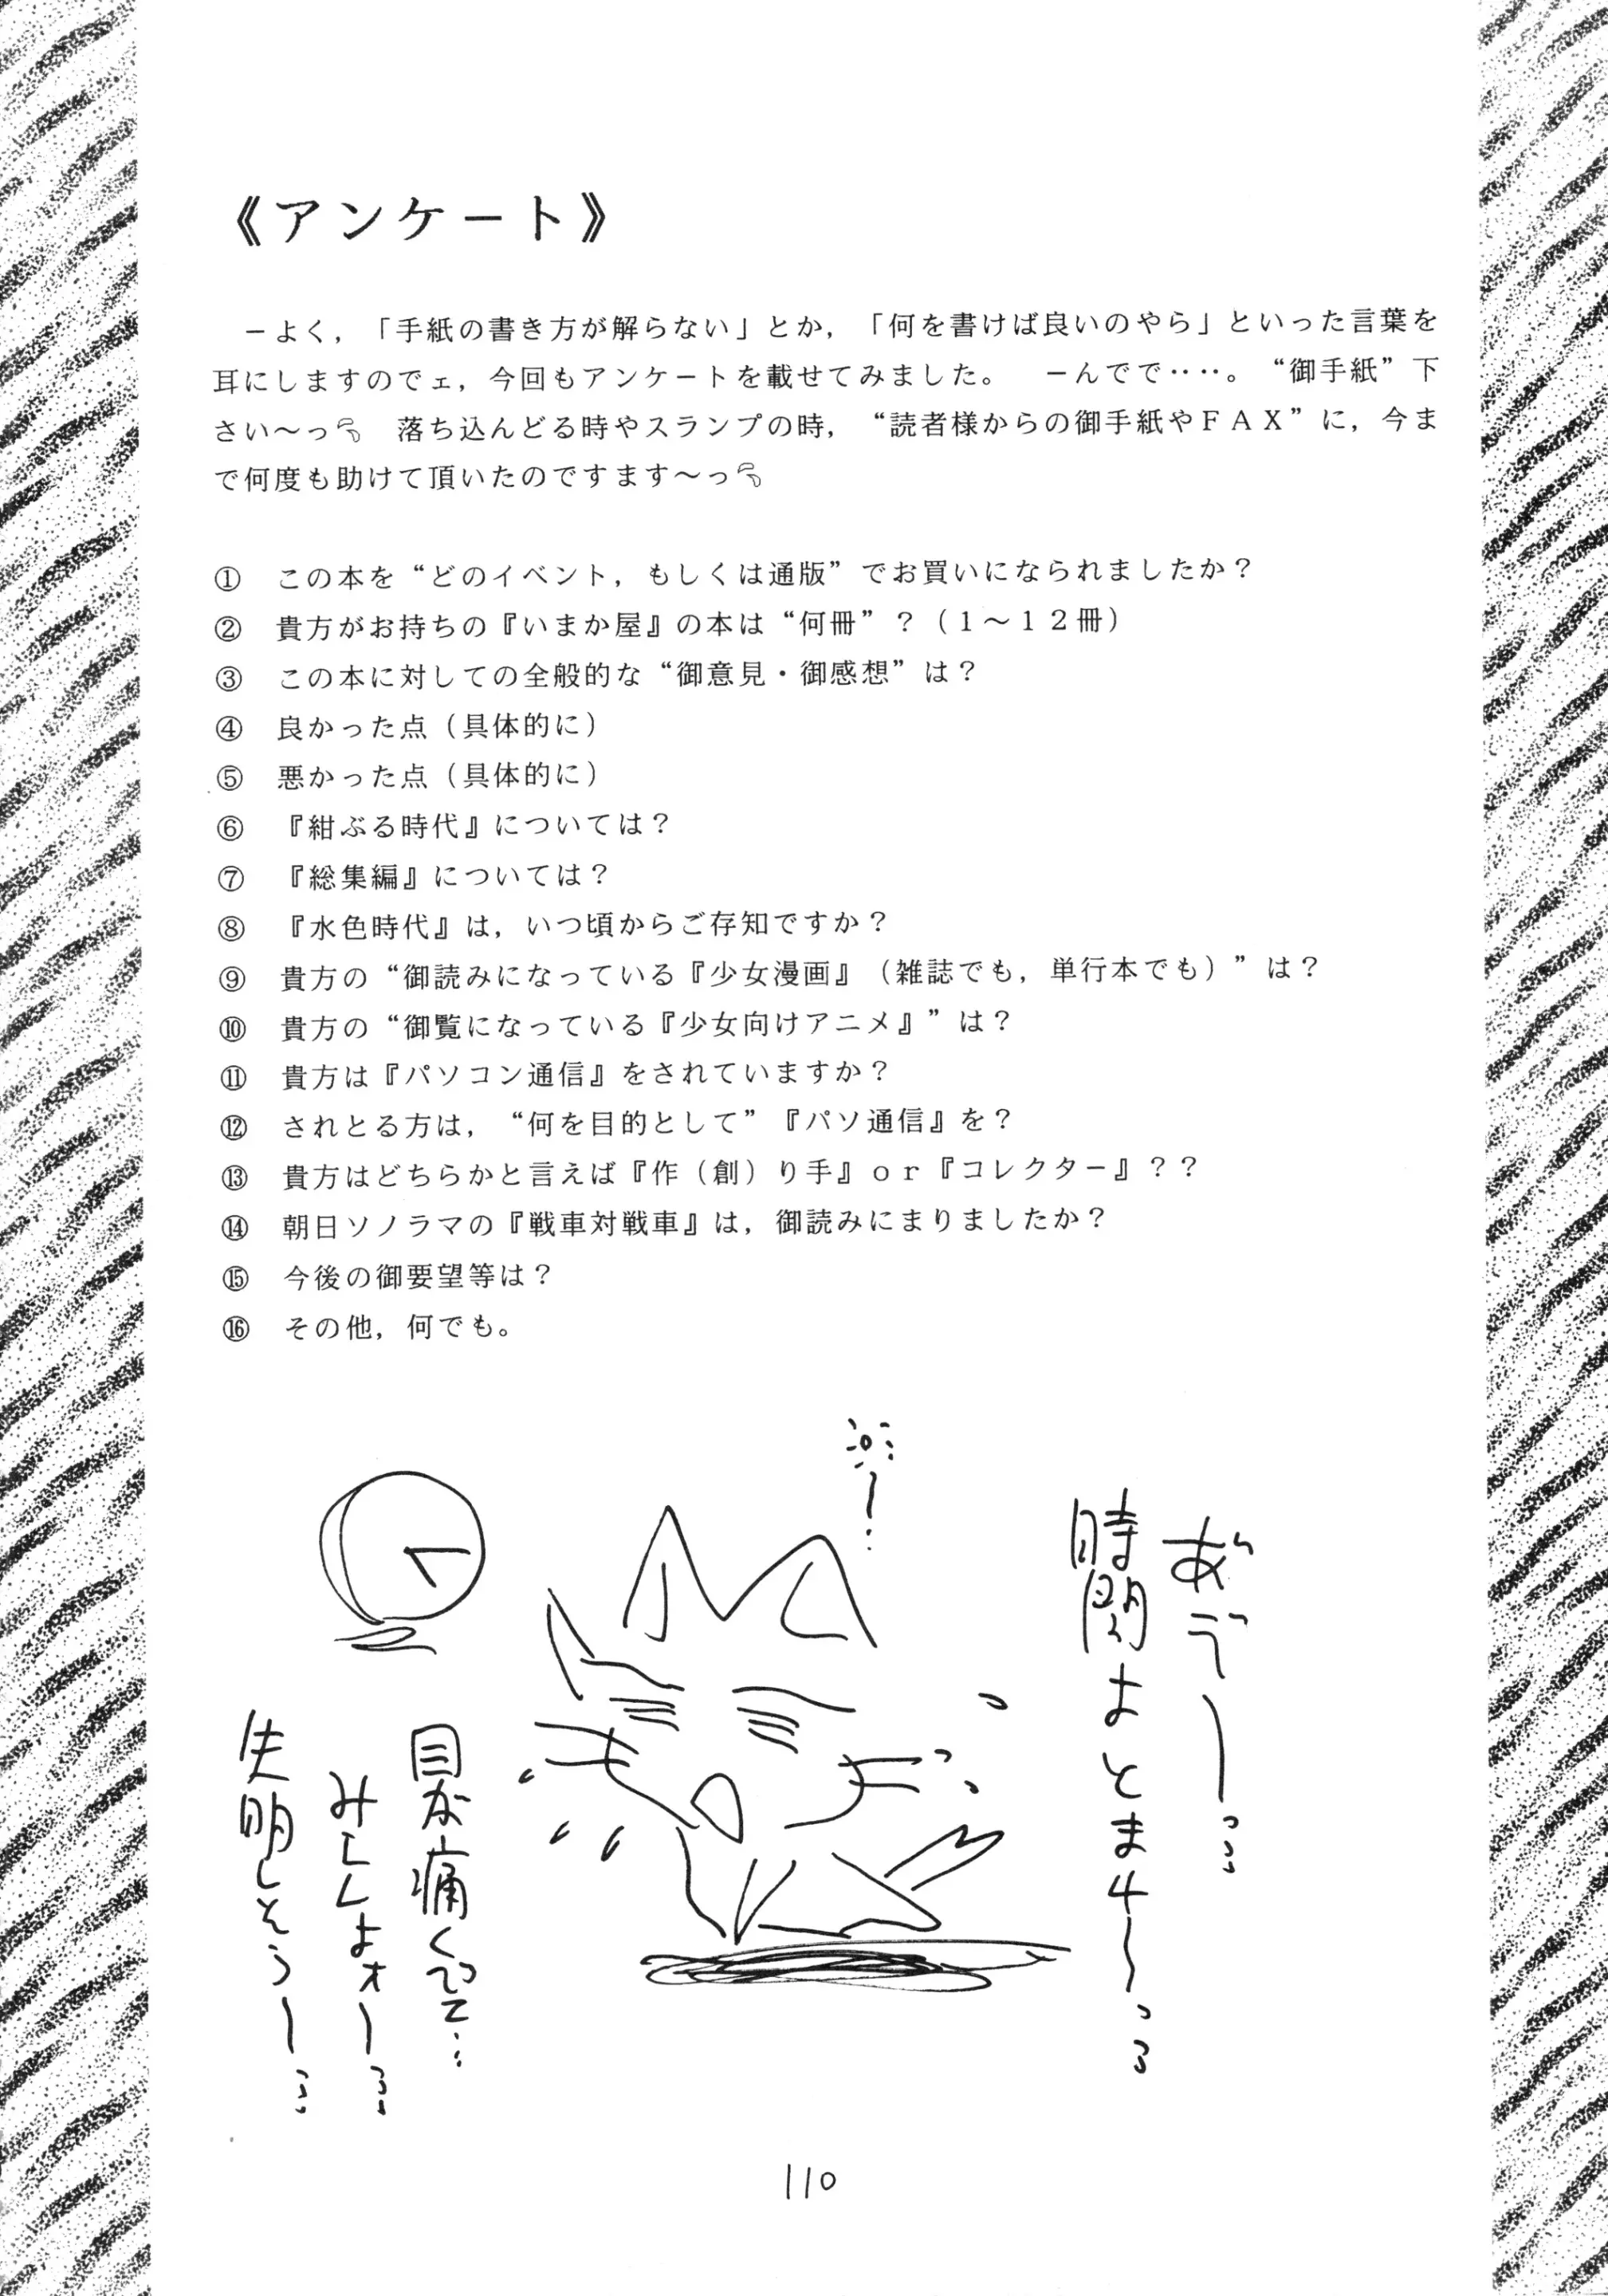 《アンケート》
ーよく，「手紙の書き方が解らない」とか，「何を書けば良いのやら」といった言葉を
耳にしますのでェ，今回もアンケートを載せてみました。　ーんでで‥‥。“御手紙”下
さい～っ　落ち込んどる時やスランプの時，“読者様からの御手紙やＦＡＸ”に，今ま
で何度も助けて頂いたのですます～っ
①　この本を“どのイベント，もしくは通版”でお買いになられましたか？
②　貴方がお持ちの『いまか屋』の本は“何冊”？（１～１２冊）
③　この本に対しての全般的な“御意見・御感想”は？
④　良かった点（具体的に）
⑤　悪かった点（具体的に）
⑥　『紺ぶる時代』については？
⑦　『総集編』については？
⑧　『水色時代』は，いつ頃からご存知ですか？
⑨　貴方の“御読みになっている『少女漫画』（雑誌でも，単行本でも）”は？
⑩　貴方の“御覧になっている『少女向けアニメ』”は？
⑪　貴方は『パソコン通信』をされていますか？
⑫　されとる方は，“何を目的として”『パソ通信』を？
⑬　貴方はどちらかと言えば『作（創）り手』ｏｒ『コレクター』？？
⑭　朝日ソノラマの『戦車対戦車』は，御読みにまりましたか？
⑮　今後の御要望等は？
⑯　その他，何でも。
あ゛う゛ーっ
時間よとまれ～っ
目が痛くって…
失明しそうーっ
110